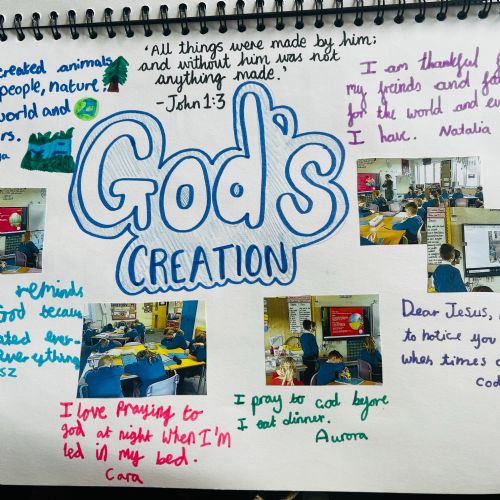 'All things were made by him;
and without him was not
anything made.'
- John 1:3
created animals
people, nature
world and
I am thankful
my friends and
for the world and
I have. Natalia
God's
CREATION
reminds
God because
everything
I love Praying to
god at night when I'm
ted in my bed.
Cara
I pray to God before
I eat dinner.
Aurora
Dear Jesus,
to notice you
when times